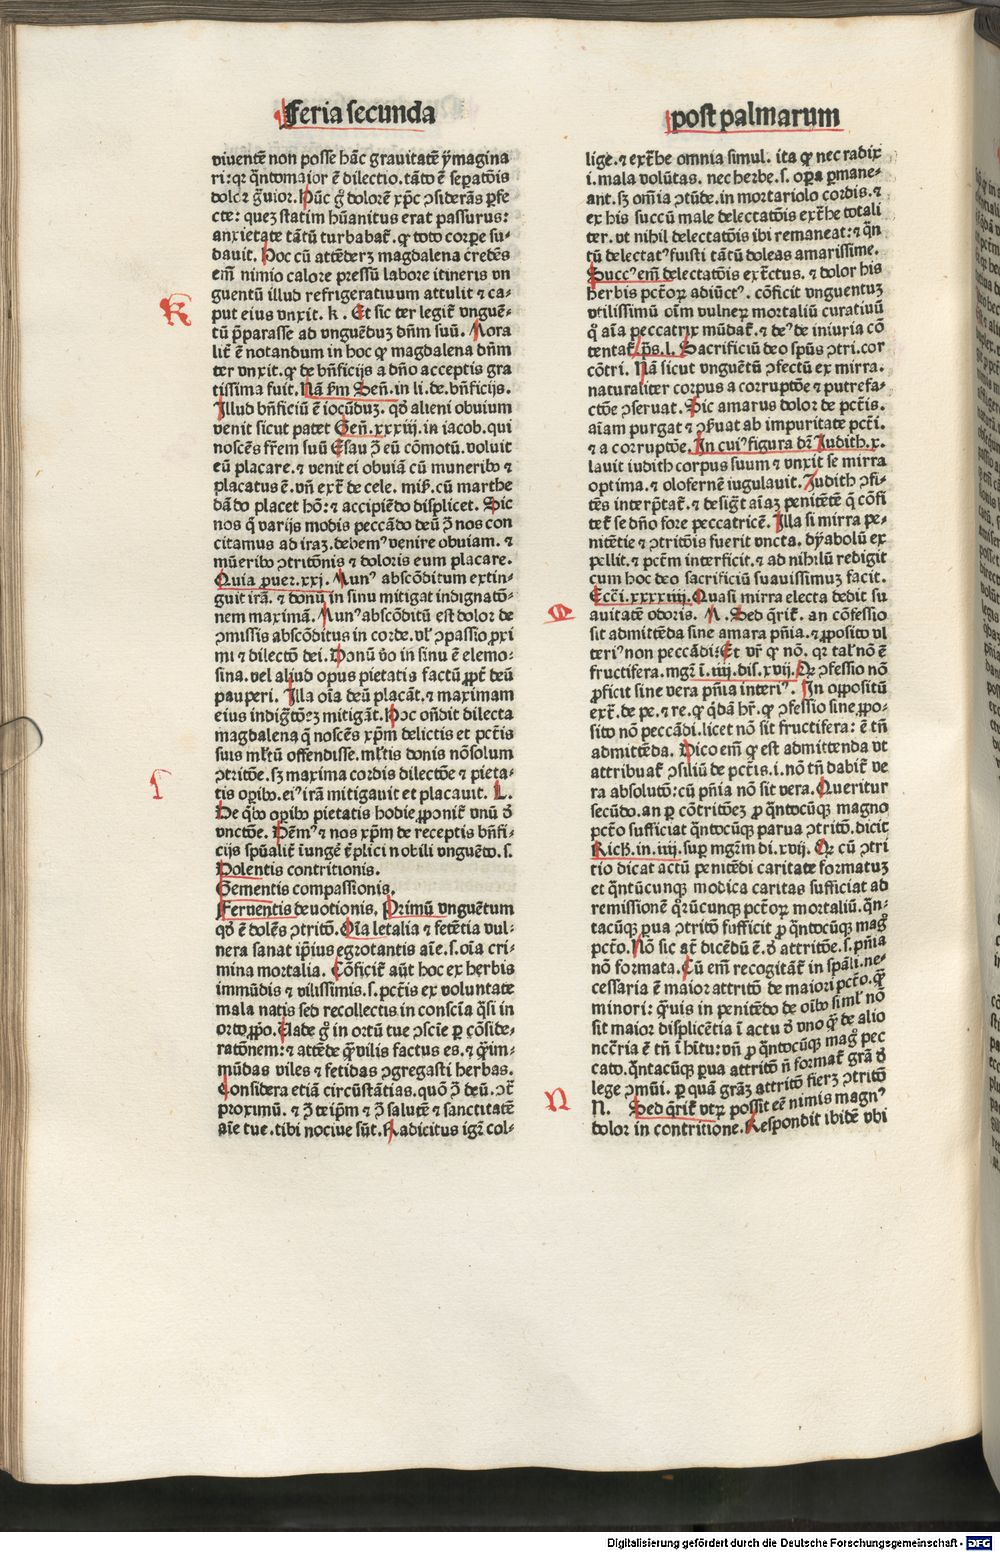 Feria secunda
viuentē non posse hāc grauitatē ẏmagina
ri: qꝛ q̄ntomaior ē dilectio. tāto ē sepatōis
dolor g̃uior. Hūc g̊ dolorē xp̄c ↄsiderās ꝑfe
cte: quez statim hūanitus erat passurus:
anxietate tātū turbabat̃. ꝙ toto corꝑe su⸗
dauit. Hoc cū attēderz magdalena credēs
em̄ nimio calore pressū labore itineris vn
guentū illud refrigeratiuum attulit ⁊ ca⸗
put eius vnxit. k. Et sic ter legit̃ vnguē⸗
tū p̄parasse ad vnguēduz dn̄m suū. Mora
lit̃ ē notandum in hoc ꝙ magdalena dn̄m
ter vnxit. ꝙ de bn̄ficijs a dn̄o acceptis gra
tissima fuit. Nā ẜm Sen̄. in li. de. bn̄ficijs.
Illud bn̄ficiū ē iocūduz. qd̛ alieni obuium
venit sicut patet Gen̄. xxxiij. in iacob. qui
noscēs fr̄em suū Esau ↄ̄ eū cōmotū. voluit
eū placare. ⁊ venit ei obuiā cū muneribꝰ ⁊
placatus ē. vn̄ ext̃ de cele. miß. cū marthe
dādo placet hō: ⁊ accipiēdo displicet. Sic
nos q̇ varijs modis peccādo deū ↄ̄ nos con
citamus ad iraz. debemꝰ venire obuiam. ⁊
mūeribꝰ ↄtritōnis ⁊ doloris eum placare.
Quia ꝓuer. xxj. Munꝰ abscōditum extin⸗
guit irā. ⁊ donū in sinu mitigat indignatō⸗
nem maximā. Munꝰ abscōditū est dolor de
ↄmissis abscōditus in corde. vl̛ ↄpassio ꝓxi
mi ⁊ dilectō dei. Donū v̊o in sinu ē elemo⸗
sina. vel aliud opus pietatis factū ꝓpt̃ deū
pauperi. Illa oīa deū placāt. ⁊ maximam
eius indig̃tōez mitigāt. Hoc on̄dit dilecta
magdalena q̄ noscēs xp̄m delictis et pctīs
suis ml̛tū offendisse. ml̛tis donis nōsolum
ↄtritōe. sꝫ maxima cordis dilectōe ⁊ pieta⸗
tis oꝑibꝰ. eiꝰ irā mitigauit et placauit. L.
De qb̊ꝰ oꝑibꝰ pietatis hodie ꝓponit̃ vnū d̛
vnctōe. Dēmꝰ ⁊ nos xp̄m de receptis bn̄fi⸗
cijs sp̄ualit̃ iungē t̃plici nobili vnguēto. s.
Dolentis contritionis.
Gementis compassionis.
Feruentis deuotionis. Primū vnguētum
qd̛ ē dolēs ↄtritō. Oīa letalia ⁊ fetētia vul⸗
nera sanat ip̄ius egrotantis aīe. s. oīa cri⸗
mina mortalia. Cōficit̃ aūt hoc ex herbis
immūdis ⁊ vilissimis. s. pctīs ex voluntate
mala natis sed recollectis in conscīa q̄si in
orto ꝓpo. Uade g̊ in ortū tue ↄscīe ꝑ cōside⸗
ratōnem: ⁊ attēde q̄ vilis factus es. ⁊ q̄im⸗
mūdas viles ⁊ fetidas ↄgregasti herbas.
Considera etiā circūstātias. quō ↄ̄ deū. ↄt̃
proximū. ⁊ ↄ̄ teip̄m ⁊ ↄ̄ salutē ⁊ sanctitatē
aīe tue. tibi nociue sūt. Radicitus igr̃ col⸗
post palmarum
lige. ⁊ ext̃he omnia simul. ita ꝙ nec radix
i. mala volūtas. nec herbe. s. oꝑa ꝑmane⸗
ant. sꝫ om̄ia ↄtūde. in mortariolo cordis. ⁊
ex his succū male delectatōis ext̃he totali
ter. vt nihil delectatōis ibi remaneat: ⁊ q̄n
tū delectatꝰ fuisti tantū doleas amarissime.
Succꝰ em̄ delectatōis extc̃tus. ⁊ dolor his
herbis pctōꝝ adiūctꝰ. cōficit vnguentuz
vtilissimū oīm vulneꝝ mortaliū curatiuū
q̊ aīa peccatrix mūdat̃. ⁊ deꝰ de iniuria cō
tentat̃. p̄s. l. Sacrificiū deo sp̄us ↄtri. cor
cōtri. Nā sicut vnguētū ↄfectū ex mirra.
naturaliter corpus a corruptōe ⁊ putrefa⸗
ctōe ↄseruat. Sic amarus dolor de pctīs.
aīam purgat ⁊ ↄẜuat ab impuritate pctī.
⁊ a corruptōe. In cuiꝰ figura dr̄ Judith. x.
lauit iudith corpus suum ⁊ vnxit se mirra
optima. ⁊ olofernē iugulauit. Judith ↄfi⸗
tēs interp̄tat̃. ⁊ desig̃t aīaz penitētē q̄ cōfi
tet̃ se dn̄o fore peccatricē. Illa si mirra pe⸗
nitētie ⁊ ↄtritōis fuerit vncta. dẏabolū ex
pellit. ⁊ pctm̄ interficit. ⁊ ad nihilū redigit
cum hoc deo sacrificiū suauissimuz facit.
Ecci. xxxxiiij. Quasi mirra electa dedit su
auitatē odoris. M. Sed q̄rit̃. an cōfessio
sit admittēda sine amara pn̄ia. ⁊ ꝓposito vl
teriꝰ non peccādi: Et vr̄ ꝙ nō. qꝛ tal̛ nō ē
fructifera. mgr̃ ī. iiij. dis. xvij. Qꝛ ↄfessio nō
ꝓficit sine vera pn̄ia interiꝰ. In oppositū
ext̃. de pe. ⁊ re. ꝙ q̇dā hr̃. ꝙ ↄfessio sine ꝓpo⸗
sito nō peccādi. licet nō sit fructifera: ē tn̄
admittēda. Dico em̄ ꝙ est admittenda vt
attribuat̃ ↄsiliū de pctīs. i. nō tn̄ dabit̃ ve
ra absolutō: cū pn̄ia nō sit vera. Queritur
secūdo. an ꝑ cōtritōez ꝓ q̄ntocūqꝫ magno
pctō sufficiat q̄ntocūqꝫ parua ↄtritō. dicit
Rich. in. iiij. suꝑ mgr̃m di. xvij. Qꝛ cū ↄtri
tio dicat actū penitēdi caritate formatuz
et q̄ntūcunqꝫ modica caritas sufficiat ad
remissionē q̄rūcunqꝫ pctōꝝ mortaliū. q̄n⸗
tacūqꝫ ꝑua ↄtritō sufficit ꝓ q̄ntocūqꝫ mag̊
pctō. Nō sic at̃ dicēdū ē. d̛ attritōe. s. pn̄ia
nō formata. Cū em̄ recogitāt̃ in spāli. ne⸗
cessaria ē maior attritō de maiori pctō. q̄
minori: q̄uis in penitēdo de oībꝰ siml̛ nō
sit maior displicētia ī actu d̛ vno q̄ de alio
ncc̄ria ē tn̄ ī hītu: vn̄ ꝓ q̄ntocūqꝫ mag̊ pec
cato. q̄ntacūqꝫ ꝑua attritō n̄ format̃ grā d̛
lege ↄmūi. ꝑ quā grāz attritō fierz ↄtritō
N. Sed q̄rit̃ vtꝝ possit eē nimis magnꝰ
dolor in contritione. Respondit ibidē vbi
K
l
M
N
Digitalisierung gefördert durch die Deutsche Forschungsgemeinschaft - DFG